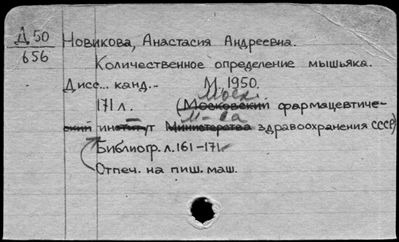 Д 50
656
Новикова, Анастасия Андреевна.
Количественное определение мышьяка.
Дисс... канд.. М. 1950.
Моск.
171 л. (Московский фармацевтиче-
М-ва
ский институт Министерства здравоохранения СССР)
Библиогр. л. 161-171
Отпеч. на пиш. маш.